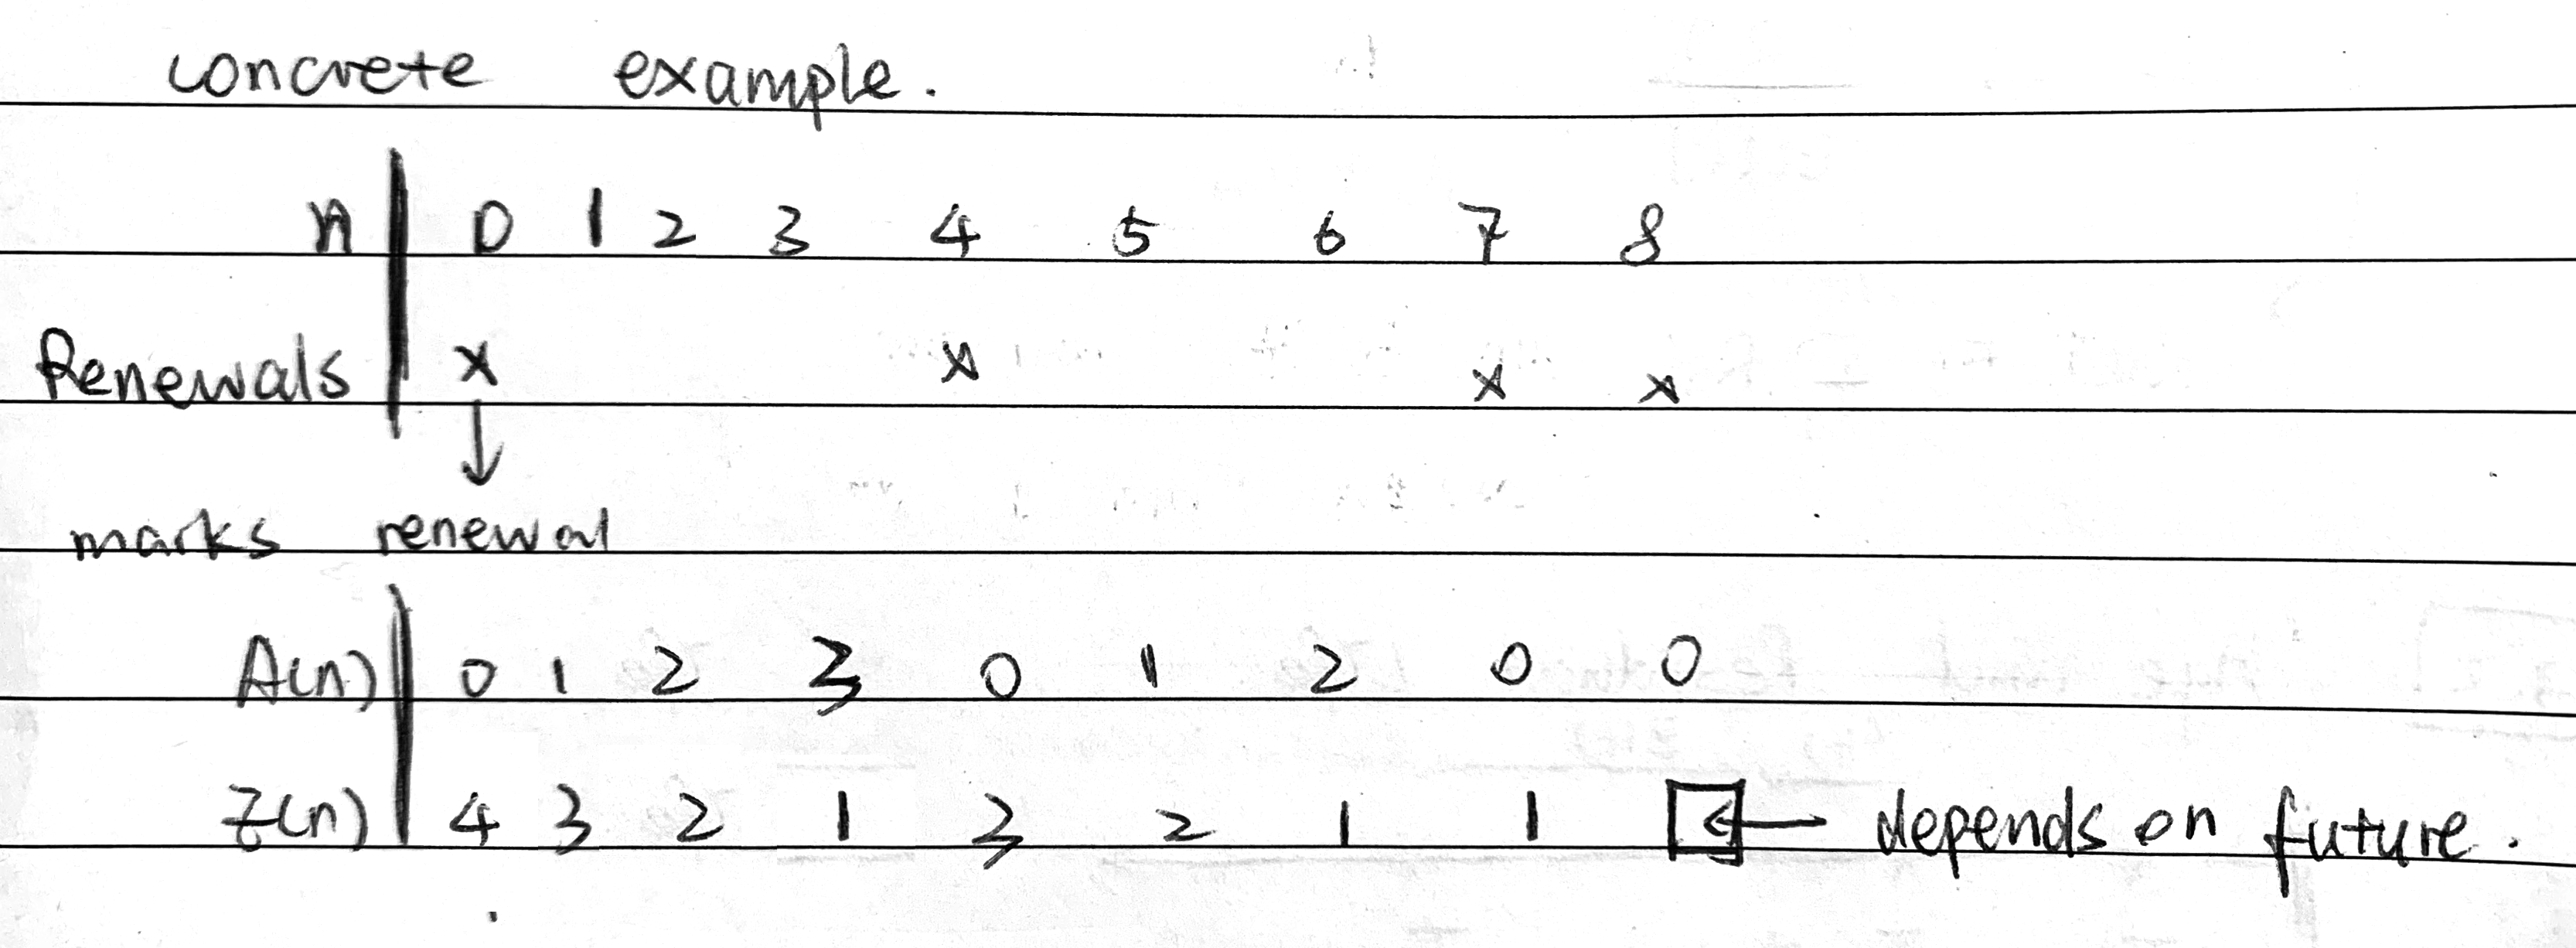 concrete example.
n | 0 1 2 3 4 5 6 7 8
Renewals | x x x x
↓
marks renewal
A(n) | 0 1 2 3 0 1 2 0 0
Z(n) | 4 3 2 1 3 2 1 1 □ ← depends on future.